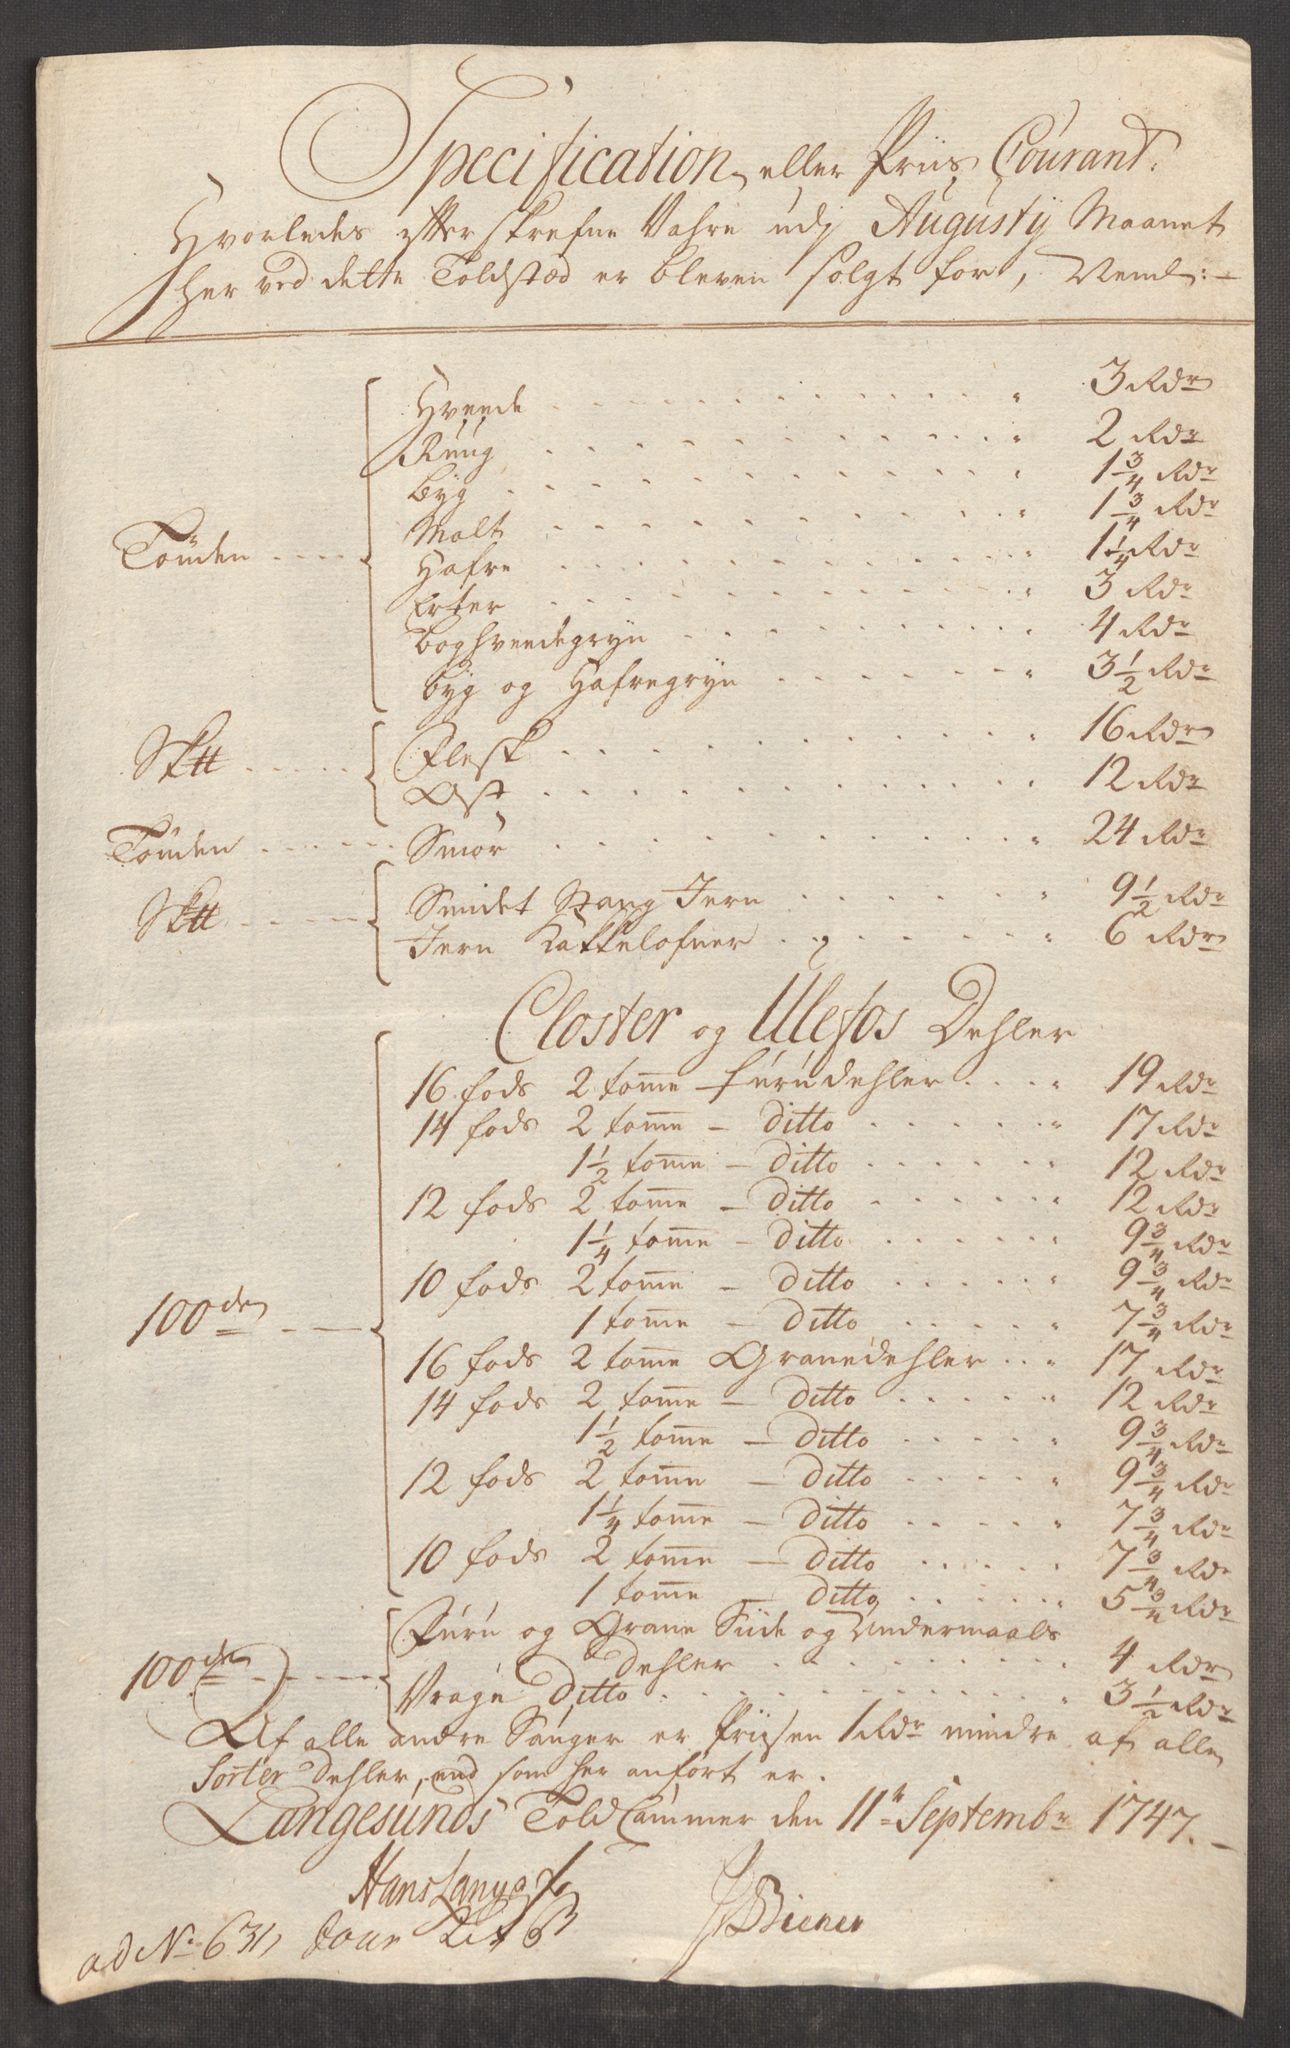 Specification eller Priis Courant.
Hvorledes effterskrefne Vahre udj Augustij Maanet
her ved dette Toldsted er bleven solgt for, Neml:
Tönden
Hveede 3 Rdr
Rüug 2 Rdr
Byg 1 3/4 Rdr
Malt 1 3/4 Rdr
Hafre 1 1/4 Rdr
Erter 3 Rdr
Boghveedegryn 4 Rdr
Byg og Hafregryn 3 1/2 Rdr
Sk℔
Flesk 16 Rdr
Ost 12 Rdr
Tönden Smör 24 Rdr
Sk℔
Smidet Stang Jern 9 1/2 Rdr
Jern Kakkelofner 6 Rdr
Closter og Ulefos Dehler
100de
16 fods 2 tomme furudehler 19 Rdr
14 fods 2 tomme - Ditto 17 Rdr
1 1/2 tomme - Ditto 12 Rdr
12 fods 2 tomme - Ditto 12 Rdr
1 1/4 tomme - Ditto 9 3/4 Rdr
10 fods 2 tomme - Ditto 9 3/4 Rdr
1 tomme - Ditto 7 3/4 Rdr
16 fods 2 tomme Granedehler 17 Rdr
14 fods 2 tomme - Ditto 12 Rdr
1 1/2 tomme - Ditto 9 3/4 Rdr
12 fods 2 tomme - Ditto 9 3/4 Rdr
1 1/4 tomme - Ditto 7 3/4 Rdr
10 fods 2 tomme - Ditto 7 3/4 Rdr
1 tomme - Ditto 5 3/4 Rdr
100de
Furu og Grane Siide og Undermaals
Dehler 4 Rdr
Vrage Ditto 3 1/2 Rdr
Af alle andre Sauger er Priisen 1 Rdr mindre af alle
Sorter Dehler, end som her anfört er.
Langesunds Told Cammer den 11te Septembr 1747.
Hans
ad No 631,